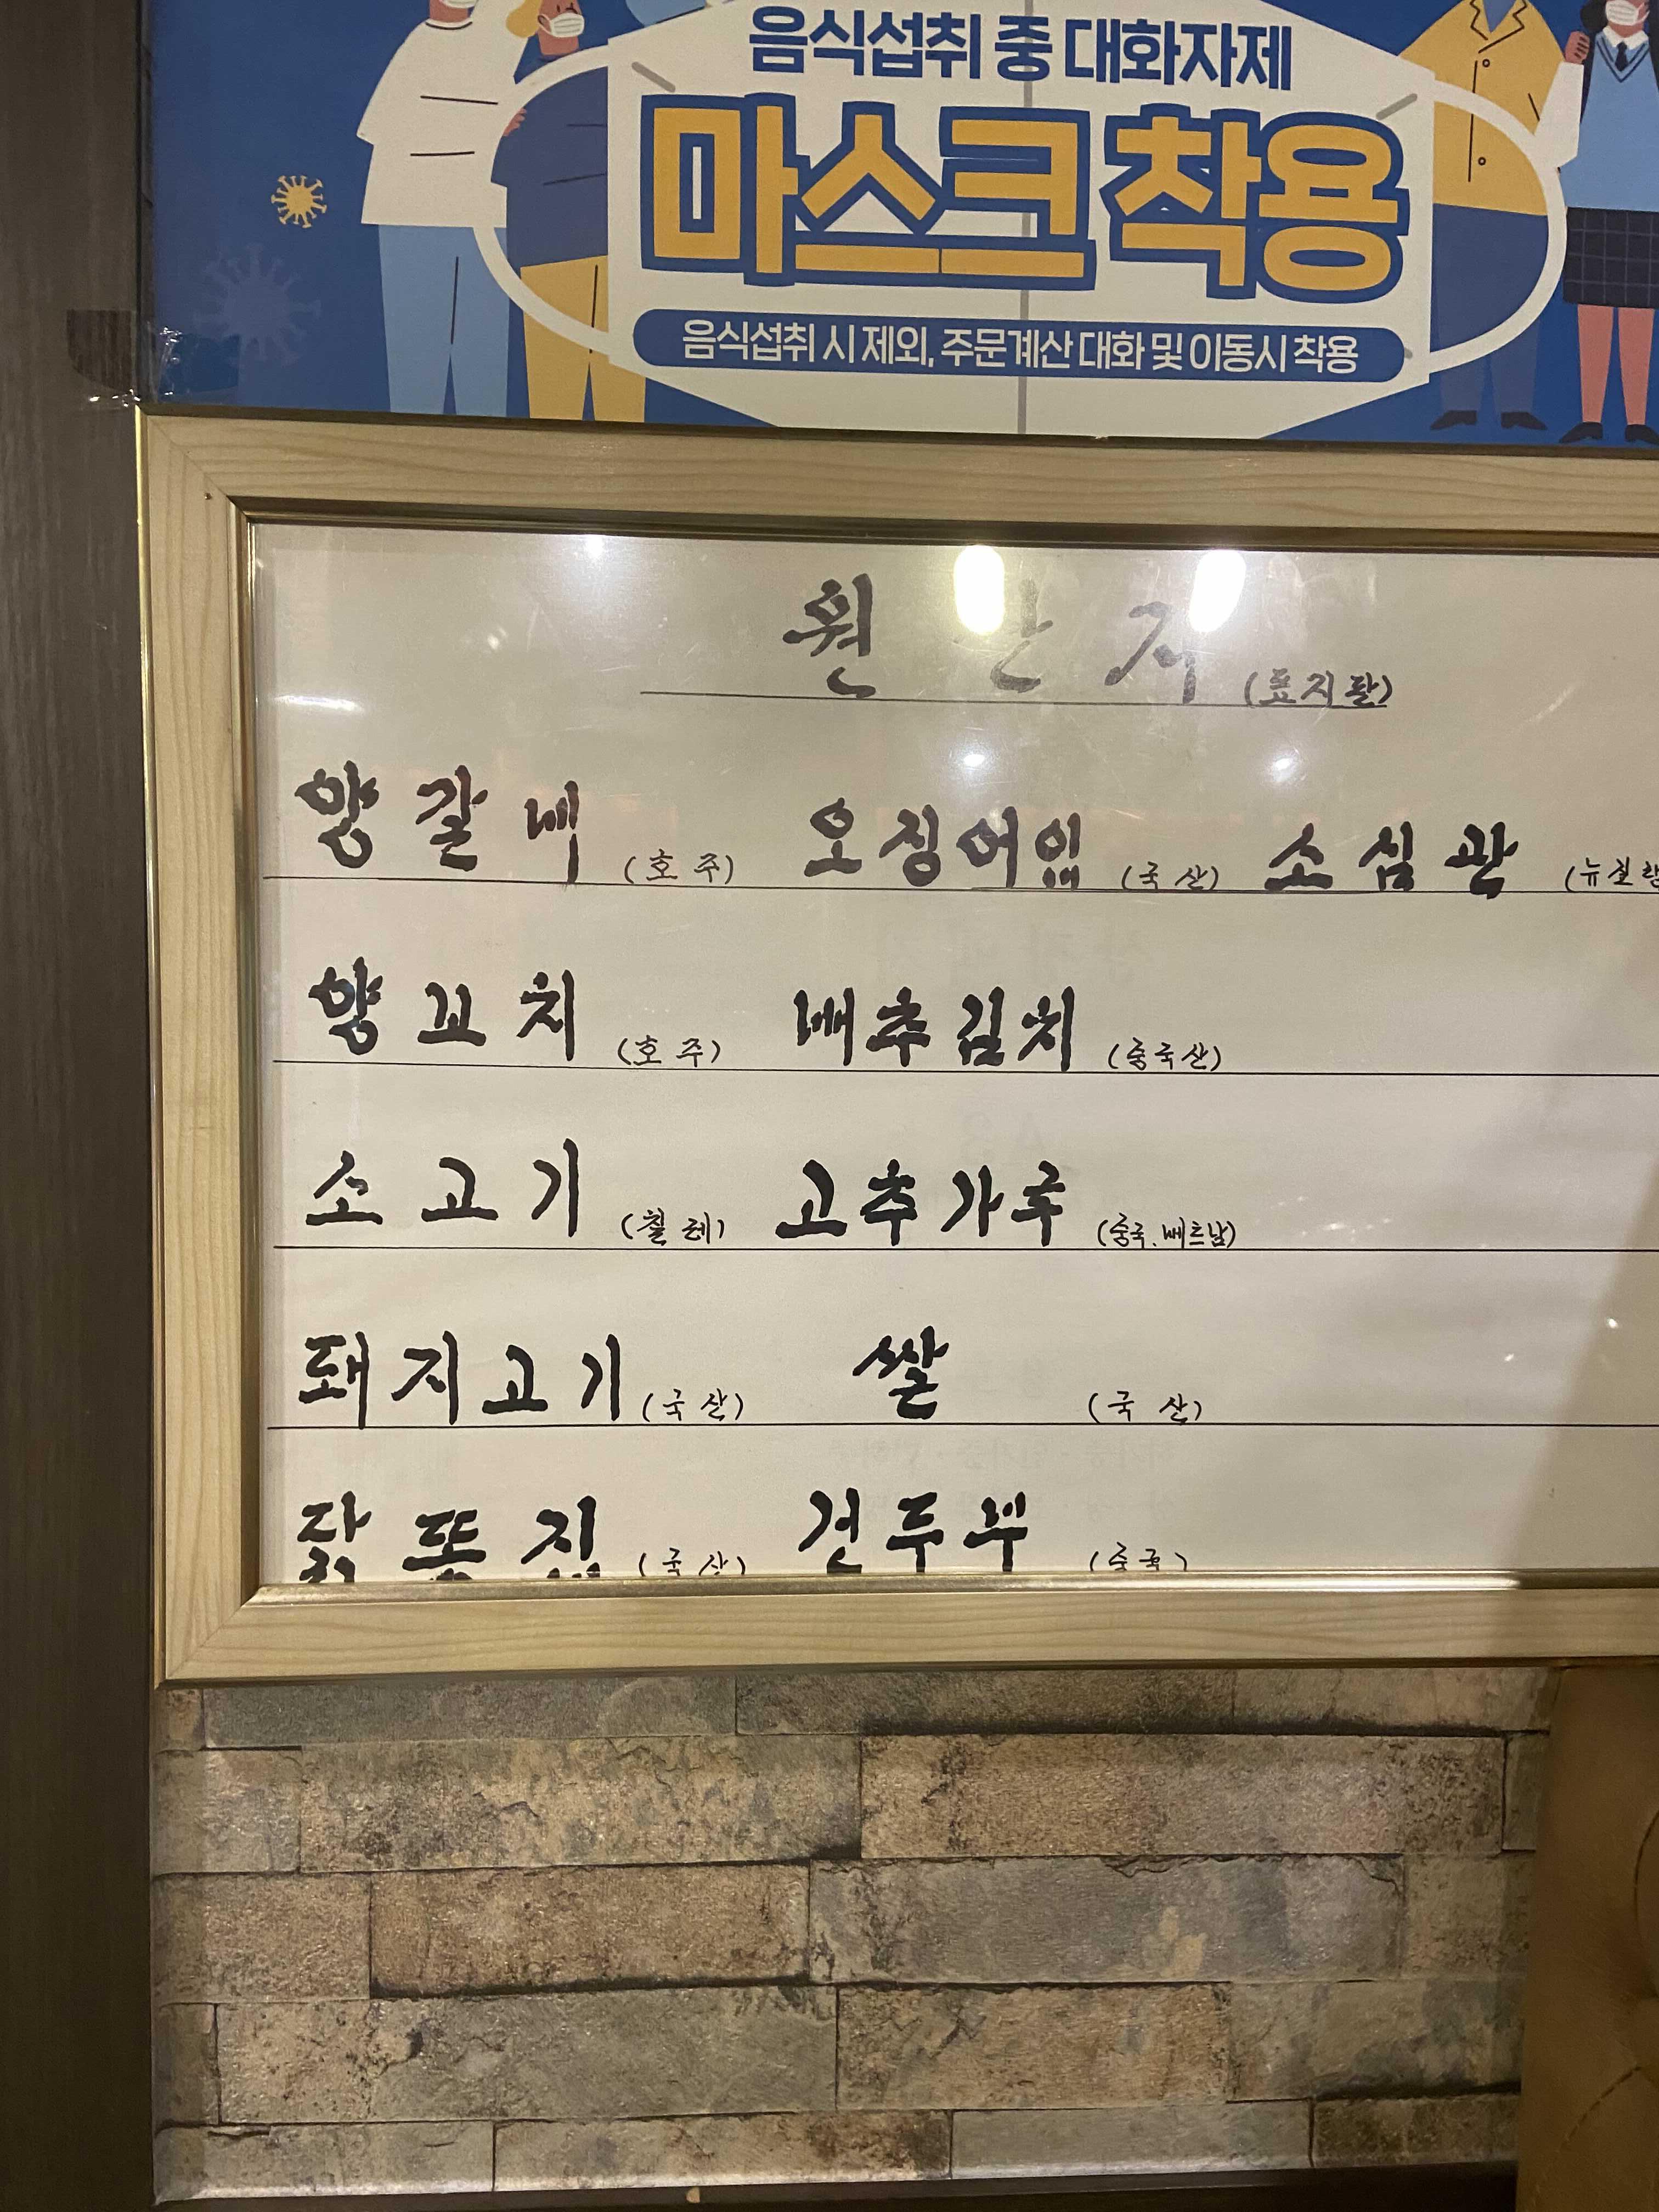 음식섭취 중 대화자제
마스크 착용
음식섭취 시 제외, 주문계산 대화 및 이동시 착용
원산지 (표지판)
양갈비 (호주) 오징어입 (국산) 소심관 (뉴질랜
양꼬치 (호주) 배추김치 (중국산)
소고기 (칠레) 고추가루 (중국.베트남)
돼지고기 (국산) 쌀 (국산)
닭똥집 (국산) 건두부 (중국)